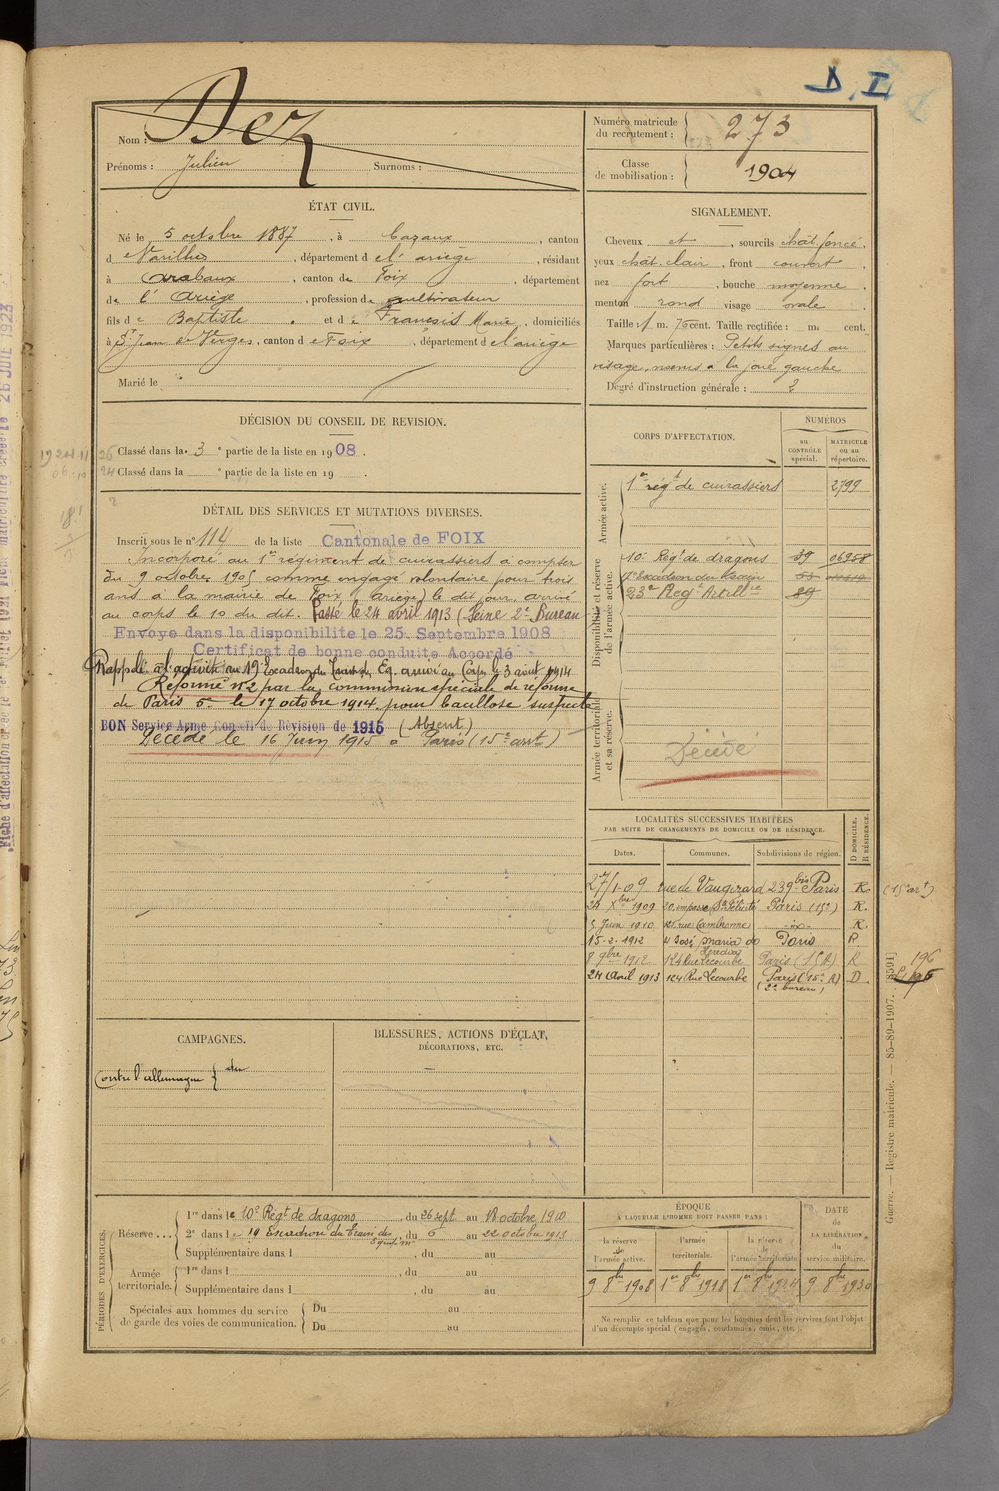 D. I.
Nom : Dez
Prénoms : Julien Surnoms :
Numéro matricule du recrutement : 273
Classe de mobilisation : 1904
ÉTAT CIVIL.
Né le 5 octobre 1887, à Cazaux, canton
d Varilhes, département de l'ariège, résidant
à Arabaux, canton de Foix, département
de l'Ariège, profession de cultivateur
fils de Baptiste et de Francois Marie, domiciliés
à St Jean de Verges, canton de Foix, département de l'ariège
Marié le
SIGNALEMENT.
Cheveux et, sourcils chât. foncé,
yeux chât. clair, front couvert,
nez fort, bouche moyenne,
menton rond visage ovale.
Taille : 1 m. 70 cent. Taille rectifiée : m. cent.
Marques particulières : Petits signes au
visage, nævus à la joue gauche
Degré d'instruction générale : 2
DÉCISION DU CONSEIL DE REVISION.
Classé dans la 3e partie de la liste en 1908.
Classé dans la e partie de la liste en 19 .
DÉTAIL DES SERVICES ET MUTATIONS DIVERSES.
Inscrit sous le n° 114 de la liste Cantonale de FOIX
Incorporé au 1er régiment de cuirassiers à compter
du 9 octobre 1905 comme engagé volontaire pour trois
ans à la mairie de Foix (Ariège) le dit jour, arrivé
au corps le 10 du dit. Passé le 24 avril 1913 (Seine 2e Bureau
Envoyé dans la disponibilité le 25 Septembre 1908
Certificat de bonne conduite Accordé
Rappelé à l'activité au 19e Escadron du Train des Eq. arrivé au Corps le 3 août 1914
Réformé n°2 par la commission spéciale de réforme
de Paris 5e le 17 octobre 1914 pour bacillose suspecte
BON Service Armé Conseil de Révision de 1915 (Absent)
Décédé le 16 Juin 1915 à Paris (15e arrt)
CORPS D'AFFECTATION.
NUMÉROS
au CONTRÔLE spécial.
MATRICULE ou au répertoire.
Armée active.
1er régt de cuirassiers 2799
Disponibilité et réserve de l'armée active.
10e Régt de dragons 39 06958
23e Regt Artillrie 89
Armée territoriale et sa réserve.
Décédé
LOCALITÉS SUCCESSIVES HABITÉES
PAR SUITE DE CHANGEMENTS DE DOMICILE OU DE RÉSIDENCE.
Dates. Communes. Subdivisions de région. D DOMICILE. R RÉSIDENCE.
27/1-09 rue de Vaugirard 239 bis Paris R (15e art)
24 Xbre 1909 20 impasse Ste Félicité Paris (15e) R.
5 Juin 1910 125 rue Cambronne R.
15-2-1912 4 José Maria de Heredia Paris R
8 9bre 1912 124 Rue Lecourbe Paris (15e A) R 196
24 Avril 1913 124 Rue Lecourbe Paris (15e A) D
(2e bureau)
CAMPAGNES.
Contre l'allemagne { du
BLESSURES, ACTIONS D'ÉCLAT,
DÉCORATIONS, ETC.
PÉRIODES D'EXERCICES.
Réserve... 1re dans le 10e Régt de dragons, du 26 sept au 18 octobre 1910
2e dans le 19 Escadron du Train des Equip. m, du 6 au 22 octobre 1913
Supplémentaire dans l , du au
Armée territoriale. 1re dans l , du au
Supplémentaire dans l , du au
Spéciales aux hommes du service de garde des voies de communication. Du au
Du au
ÉPOQUE
À LAQUELLE L'HOMME DOIT PASSER DANS :
la réserve de l'armée active. l'armée territoriale. la réserve de l'armée territoriale.
DATE DE LA LIBÉRATION du service militaire.
9 8bre 1908 1er 8bre 1918 1er 8bre 1924 9 8bre 1930
Ne remplir ce tableau que pour les hommes dont les services font l'objet
d'un décompte spécial (engagés, condamnés, omis, etc.).
Guerre. — Registre matricule. — 85-89-1907. [8591]